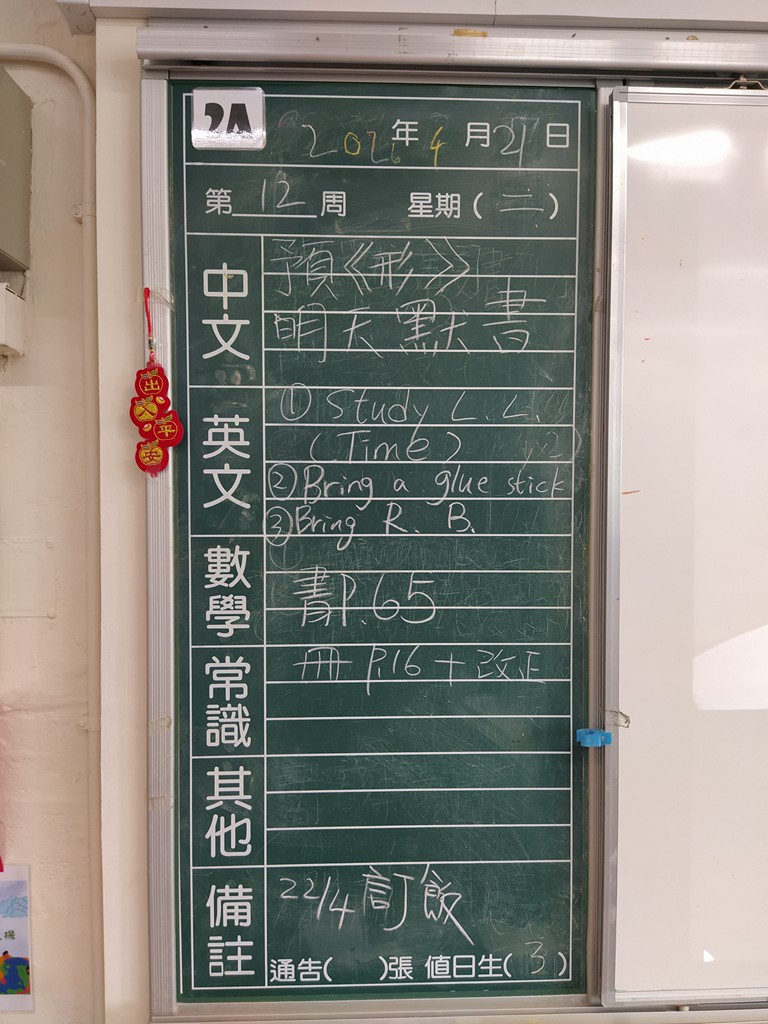 2A
2026年4月21日
第12周 星期(二)
中文
預《形》
明天默書
英文
① Study L. L.
(Time)
② Bring a glue stick
③ Bring R. B.
數學
書P.65
常識
冊 P.16 + 改正
其他
備註
22/4 訂飯
通告( )張 值日生(3)
出
入
平
安